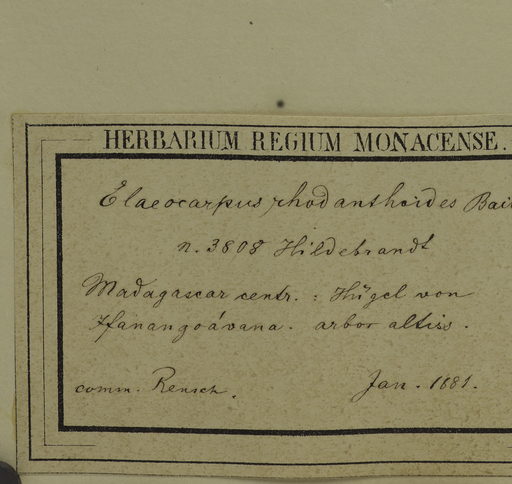 HERBARIUM REGIUM MONACENSE.
Elaeocarpus rhodanthoides Bai
n. 3808 Hildebrandt
Madagascar centr. : Hügel von
Ifanangoávana. arbor altiss.
comm. Rensch. Jan. 1881.